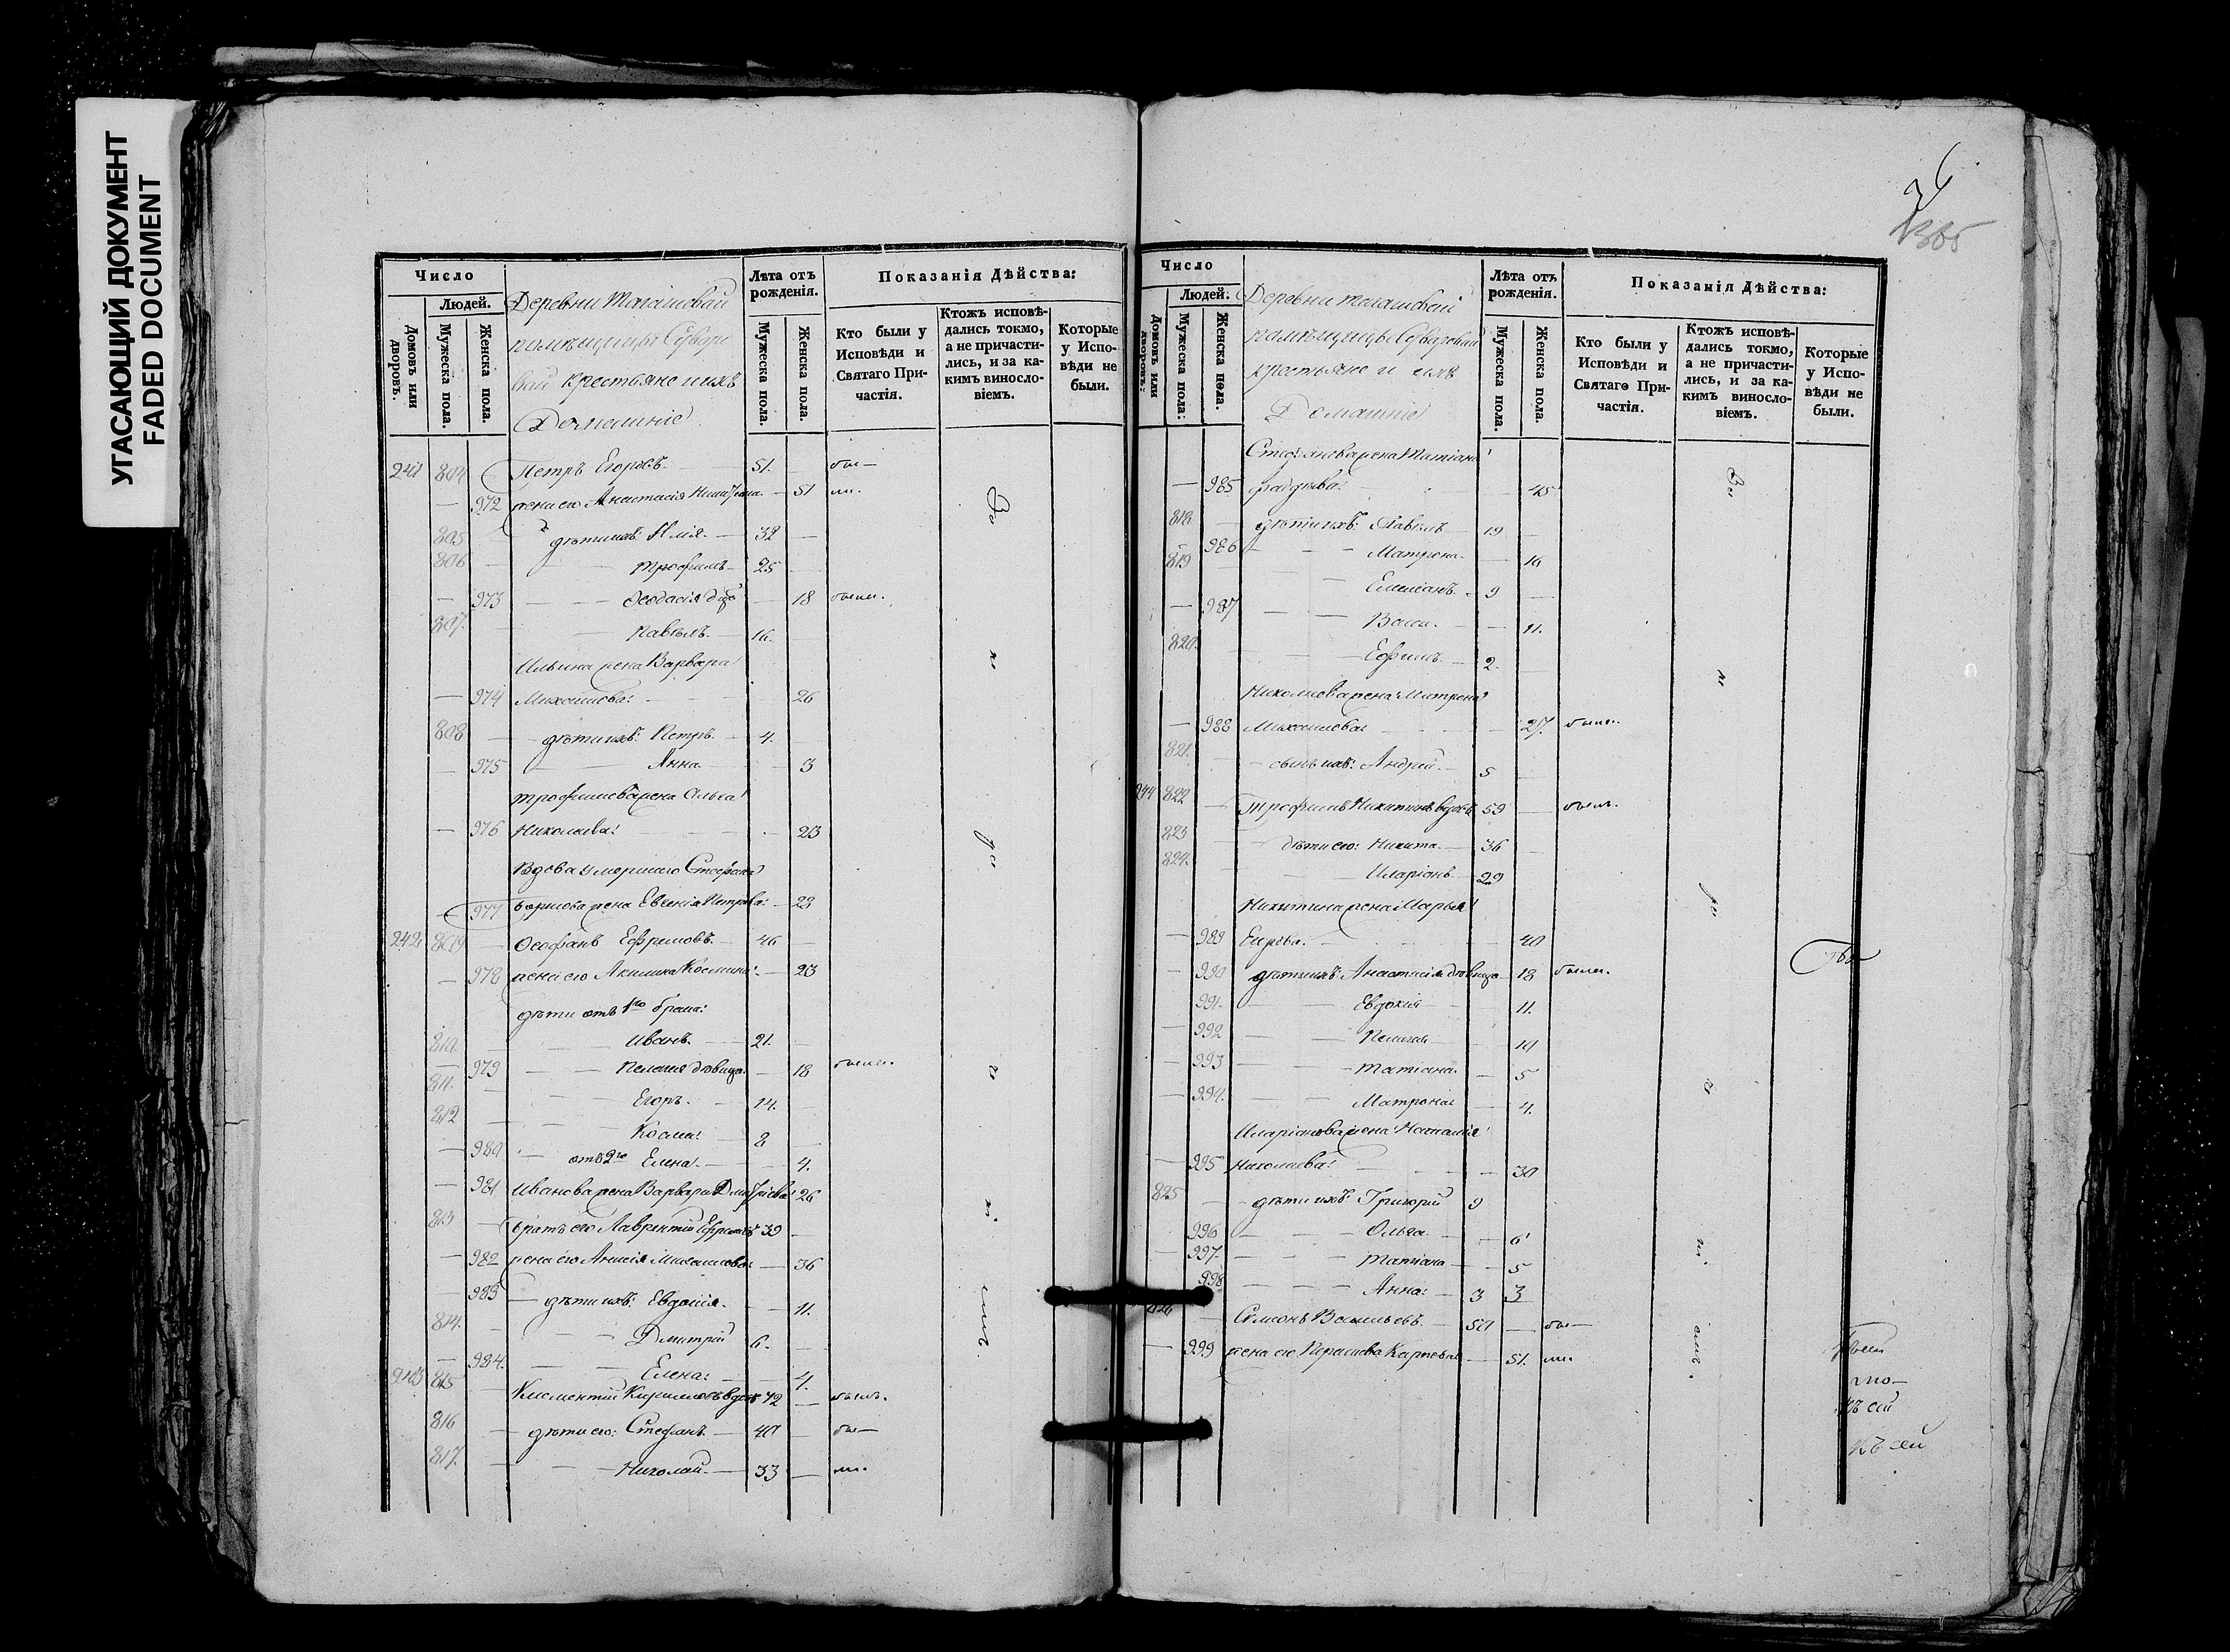 УГАСАЮЩИЙ ДОКУМЕНТ
FADED DOCUMENT
Число
Людей.
Домовъ или дворовъ.
Мужеска пола.
Женска пола.
Деревни
помѣщицы
вой крестьяне и ихъ
Домашніе
Лѣта отъ рожденія.
Мужеска пола.
Женска пола.
Показанія Дѣйства:
Кто были у Исповѣди и Святаго Причастія.
Ктожъ исповѣдались токмо, а не причастились, и за какимъ винословіемъ.
Которые у Исповѣди не были.
241 804 Петръ Егоровъ 51. бы—
— 972 жена его Анастасія — 51 ли.
805 дѣти ихъ: Илія. — 32 —
806 — Трофимъ — 25 —
— 973 — Ѳеодосія дѣв — 18 были.
807. — Павелъ. — 16. —
Ильина жена Варвара
— 974 Михайлова: 26
808 — дѣти ихъ: Петръ. — 4. —
— 975 — Анна. — 3
Трофимова жена Ольга
— 976 Николаева: 23
Вдова умершаго Стефана
— 977 жена Евгенія Петрова: — 23
242. 809 — Ѳеофанъ Ефремовъ. — 46 —
— 978 жена его Акилина Космина: — 23
дѣти отъ 1го брака:
810. — Иванъ. — 21. —
— 979 — Пелагія дѣвица. — 18 были.
811. — Егоръ. — 14. —
812 — Косма: 8 —
— 980 — отъ 2го Елена. — 4.
— 981 Иванова жена Варвара Дмитріева: 26
813 — Братъ его Лаврентій Ефремовъ 39 —
— 982 жена его Анисія Михайлова: — 36
— 983 — дѣти ихъ: Евдокія. — 11.
814. — Дмитрій 6. —
— 984. — Елена: — 4.
243 815 Климентій Кириловъ вдовъ 72 — былъ.
816 — дѣти его: Стефанъ. — 40 — бы—
817. — Николай. — 33 — ли.
36
365
Число
Людей.
Домовъ или дворовъ.
Мужеска пола.
Женска пола.
Деревни
помѣщицы
крестьяне и ихъ
Домашніе
Лѣта отъ рожденія.
Мужеска пола.
Женска пола.
Показанія Дѣйства:
Кто были у Исповѣди и Святаго Причастія.
Ктожъ исповѣдались токмо, а не причастились, и за какимъ винословіемъ.
Которые у Исповѣди не были.
Стефанова жена Татіана
— 985 Фадѣева: 45
818 — дѣти ихъ: Павелъ 19 —
— 986 — Матрона. — 16
819 — Емеліанъ. 9 —
— 987 — Васса. — 11.
820. — Ефимъ. — 2. —
Николаева жена Матрона
— 988 Михайлова: 27. были.
821. — сынъ ихъ: Андрей. — 5 —
244 822 — Трофимъ Никитинъ вдовъ 59 — былъ.
823 — дѣти его: Никита. — 36 —
824. — Иларіонъ. — 29 —
Никитина жена Марья
— 989 Егорова. 40
— 990 дѣти ихъ: Анастасія дѣвица — 18 были.
991. — Евдокія — 11.
992 — Пелагія — 10
— 993 — Татіана. — 5
— 994. — Матрона: — 4.
Иларіонова жена Наталія
— 995 Николаева: 30
825 — дѣти ихъ: Григорій 9
996 — Ольга. — 6
— 997. — Татіана — 5
998 — Анна: — 3 3
826 — Симеонъ Васильевъ. — 50 — бы—
— 999 жена его Параскева Карпова: — 51. ли.